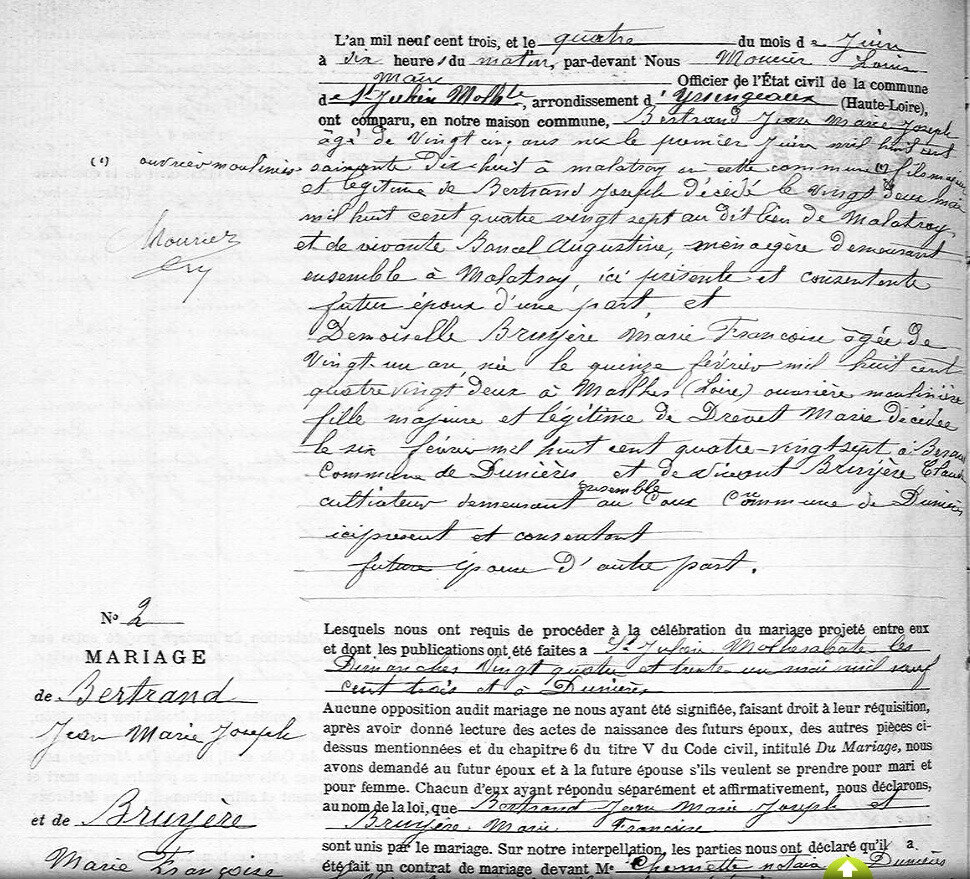 L'an mil neuf cent trois, et le quatre du mois de Juin
à dix heures du matin, par-devant Nous Mourier Louis
Maire Officier de l'État civil de la commune
de St Julien Molhte, arrondissement d'Yssingeaux (Haute-Loire),
ont comparu, en notre maison commune, Bertrand Jean Marie Joseph
âgé de Vingt cinq ans né le premier Juin mil huit cent
(1) ouvrier moulinier
soixante dix-huit à malatray en cette commune (1) fils majeur
et légitime de Bertrand Joseph décédé le vingt deux mai
mil huit cent quatre vingt sept au dit lieu de Malatray
Mourier
et de vivante Bancel Augustine, ménagère demeurant
ensemble à Malatray, ici présente et consentente
futur époux d'une part, et
Demoiselle Bruyère Marie Francoise âgée de
Vingt-un an, née le quinze février mil huit cent
quatre vingt deux à Marlhes (Loire) ouvrière moulinière
fille majeure et légitime de Drevet Marie décédée
le six février mil huit cent quatre-vingt sept à
Commune de Dunières et de vivant Bruyère Claude
ensemble
cultivateur demeurant au Commune de Dunières
ici présent et consentant
future épouse d'autre part.
No 2
MARIAGE
de Bertrand
Jean Marie Joseph
et de Bruyère
Marie Françoise
Lesquels nous ont requis de procéder à la célébration du mariage projeté entre eux
et dont les publications ont été faites a St Julien Molhesabate les
Dimanches Vingt quatre et trente un mai mil neuf
cent trois et à Dunières
Aucune opposition audit mariage ne nous ayant été signifiée, faisant droit à leur réquisition,
après avoir donné lecture des actes de naissance des futurs époux, des autres pièces ci-
dessus mentionnées et du chapitre 6 du titre V du Code civil, intitulé Du Mariage, nous
avons demandé au futur époux et à la future épouse s'ils veulent se prendre pour mari et
pour femme. Chacun d'eux ayant répondu séparément et affirmativement, nous déclarons,
au nom de la loi, que Bertrand Jean Marie Joseph et
Bruyère Marie Francoise
sont unis par le mariage. Sur notre interpellation, les parties nous ont déclaré qu'il a
été fait un contrat de mariage devant Me Chomette notaire Dunières